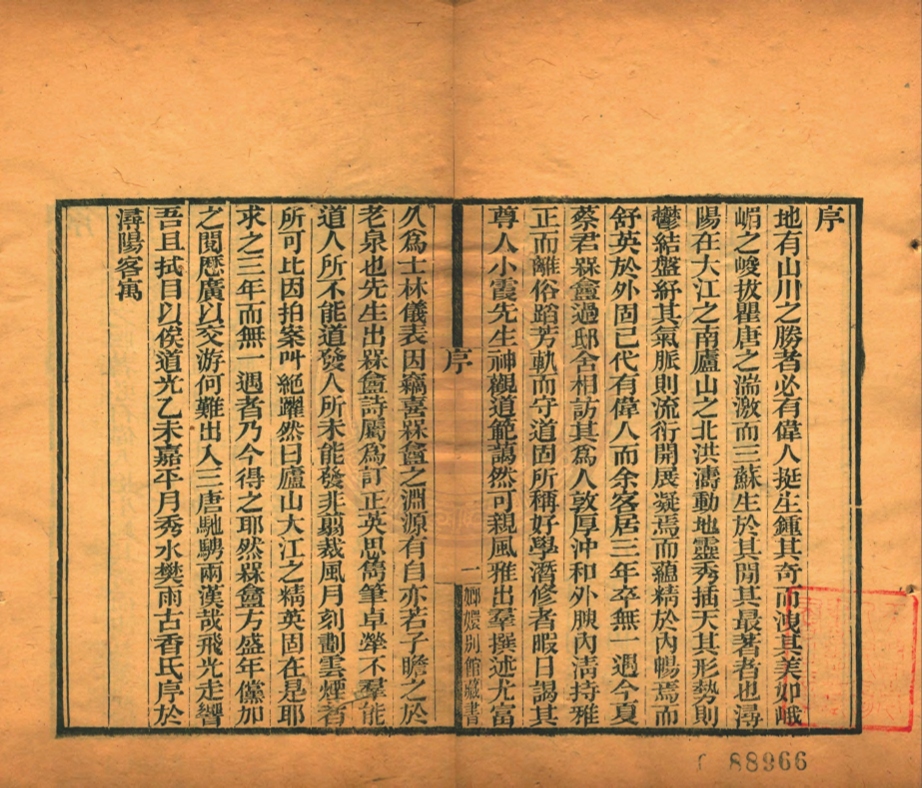 序
地有山川之勝者必有偉人挺生鍾其奇而洩其美如峨
嵋之峻拔瞿唐之湍激而三蘇生於其閒其最著者也潯
陽在大江之南廬山之北洪濤動地靈秀插天其形勢則
鬱結盤紆其氣脈則流衍開展凝焉而蘊精於內暢焉而
舒英於外固已代有偉人而余客居三年卒無一遇今夏
蔡君槑盦過邸舍相訪其為人敦厚沖和外腴內清持雅
正而離俗蹈芳軌而守道固所稱好學潛修者暇日謁其
尊人小霞先生神觀道範藹然可親風雅出羣撰述尤富
序
一
嫏嬛別館藏書
久為士林儀表因竊喜槑盦之淵源有自亦若子瞻之於
老泉也先生出槑盦詩屬為訂正英思雋筆卓犖不羣能
道人所不能道發人所未能發非翦裁風月刻劃雲煙者
所可比因拍案叫絕躍然曰廬山大江之精英固在是耶
求之三年而無一遇者乃今得之耶然槑盦方盛年儻加
之閱歷廣以交游何難出入三唐馳騁兩漢哉飛光走響
吾且拭目以俟道光乙未嘉平月秀水樊雨古香氏序於
潯陽客寓
88966